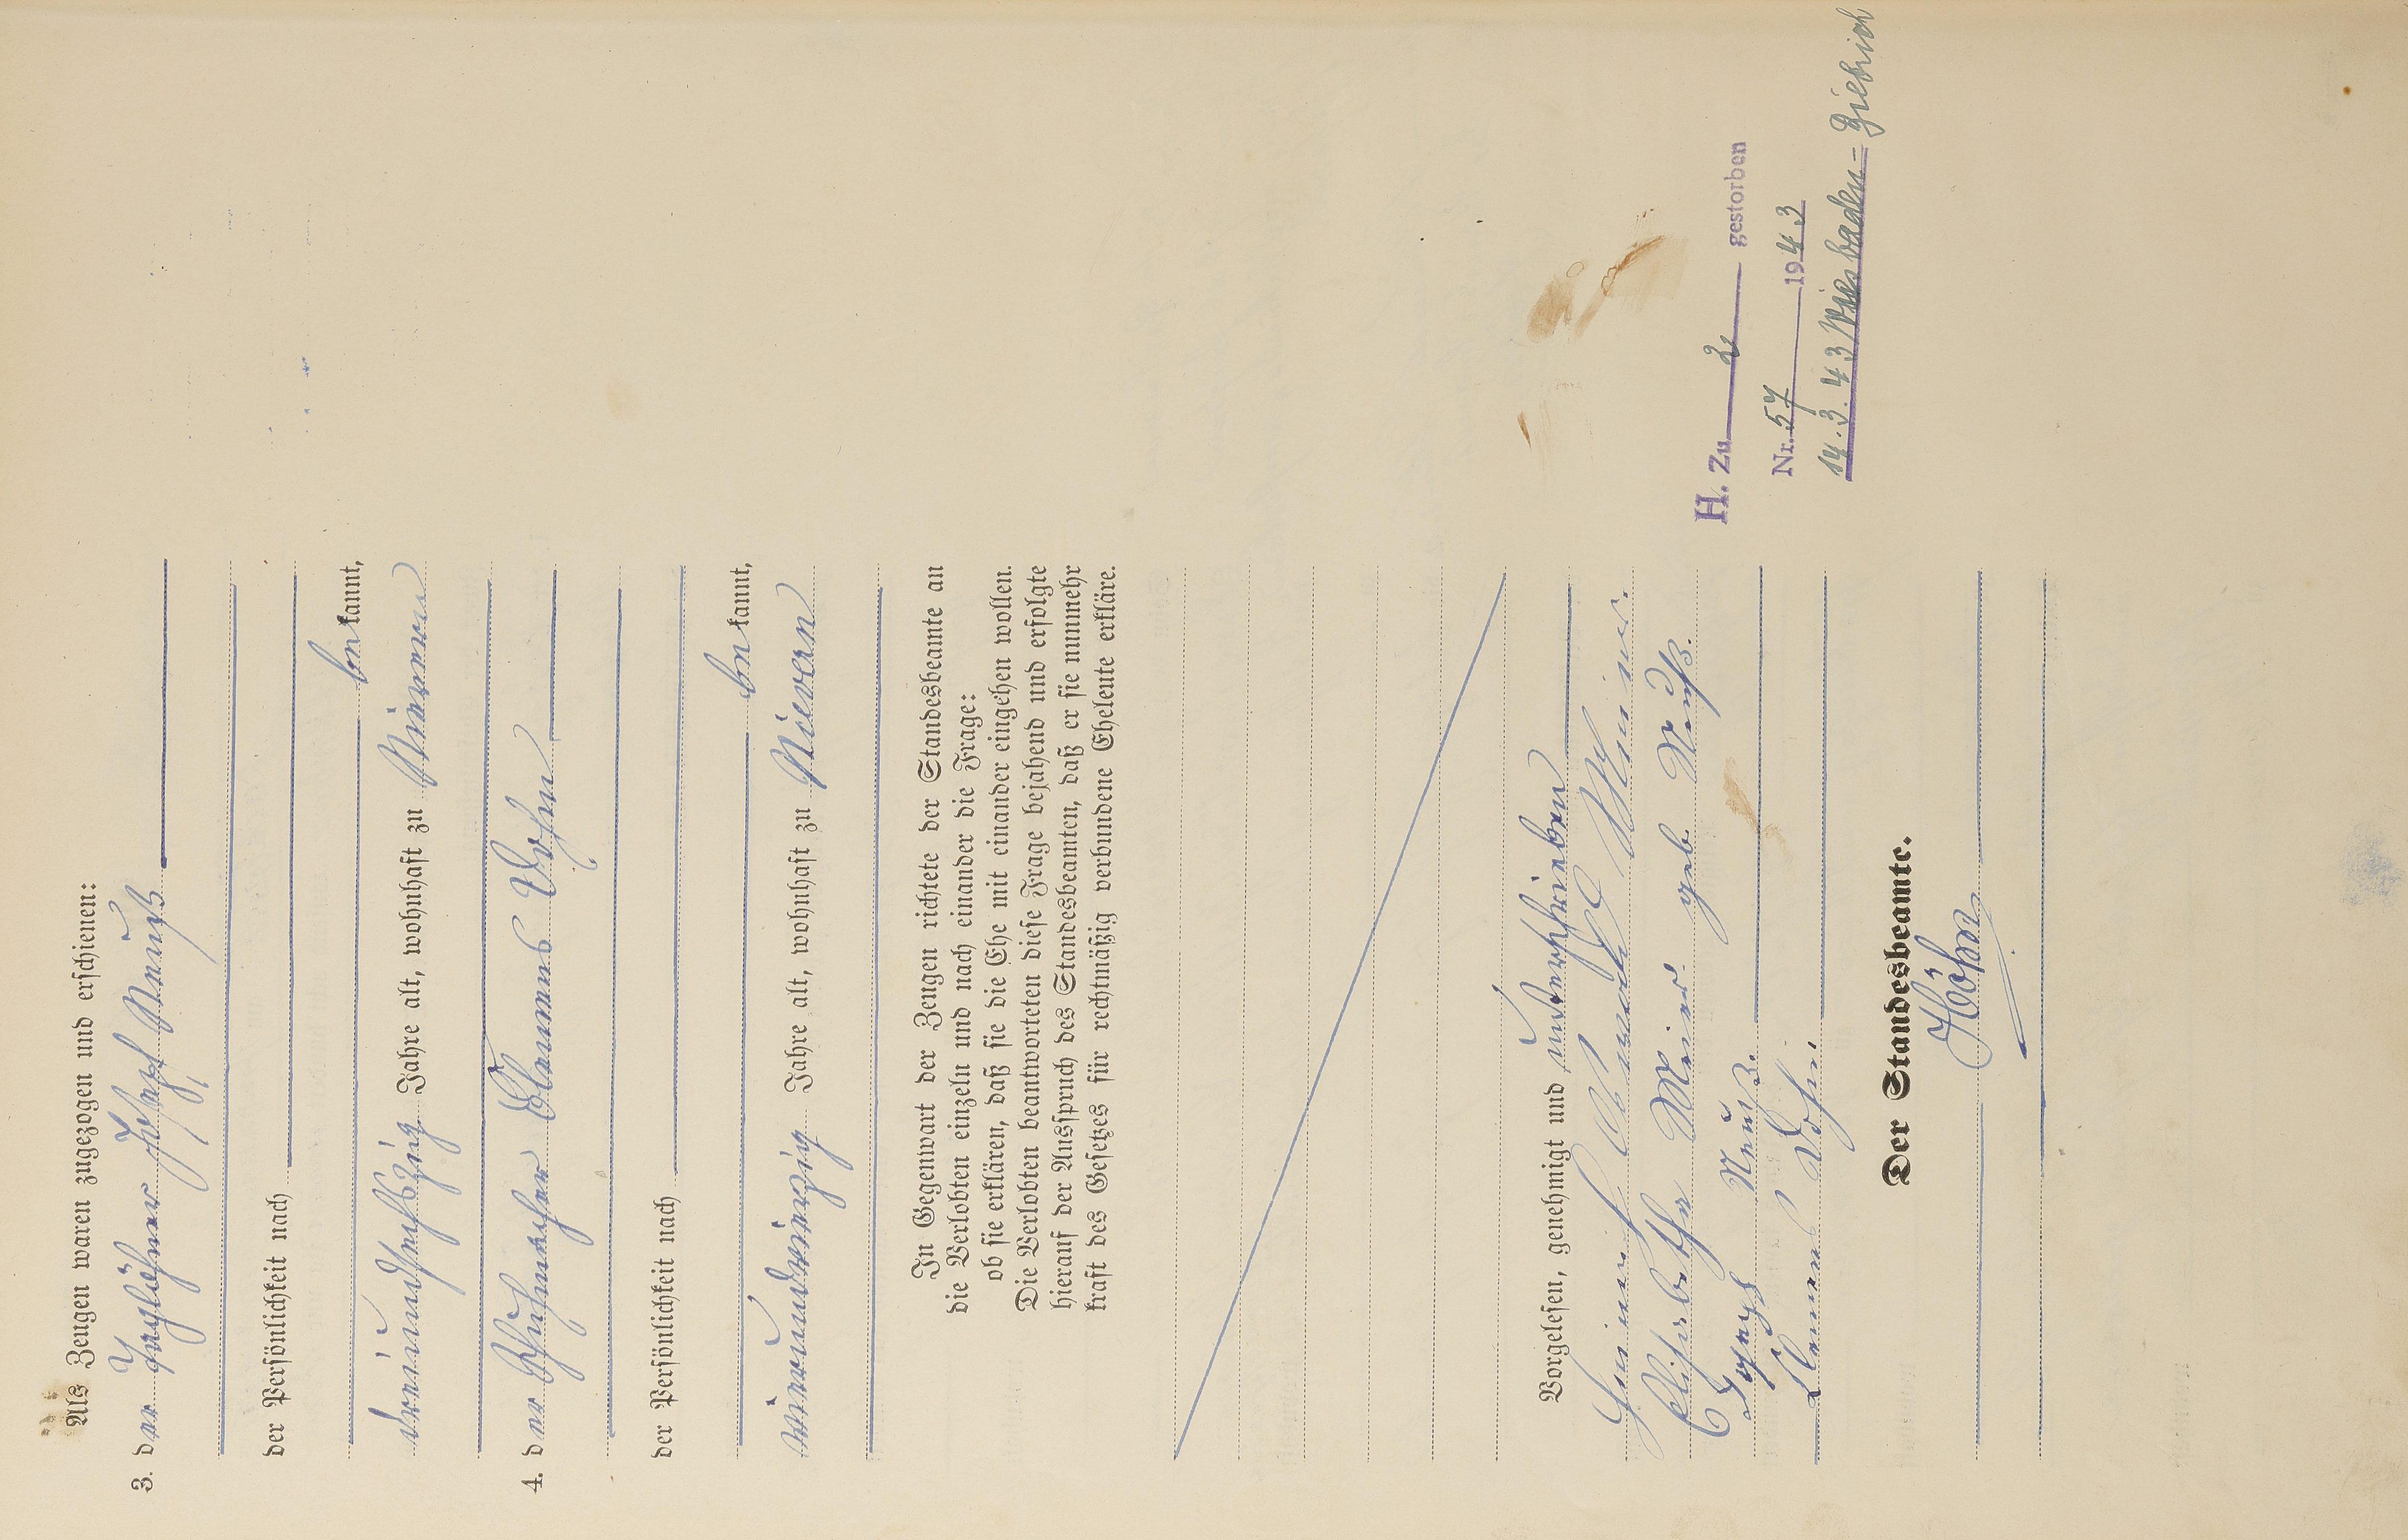 Als Zeugen waren zugezogen und erschienen:
3. der Taglöhner Joseph Neuß
der Persönlichkeit nach
bekannt,
dreiundsechszig Jahre alt, wohnhaft zu Nievern
4. der Schuhmacher Clemens Dohn
der Persönlichkeit nach
bekannt,
vierundvierzig Jahre alt, wohnhaft zu Nievern
In Gegenwart der Zeugen richtete der Standesbeamte an
die Verlobten einzeln und nach einander die Frage:
ob sie erklären, daß sie die Ehe mit einander eingehen wollen.
Die Verlobten beantworteten diese Frage bejahend und erfolgte
hierauf der Ausspruch des Standesbeamten, daß er sie nunmehr
kraft des Gesetzes für rechtmäßig verbundene Eheleute erkläre.
Vorgelesen, genehmigt und unterschrieben
Elisabetha geb Neuß.
Joseph Neuß.
Clemens Dohn.
Der Standesbeamte.
H. Zu 2 gestorben
Nr. 57 1943
14.3.43 Wiesbaden=Biebrich